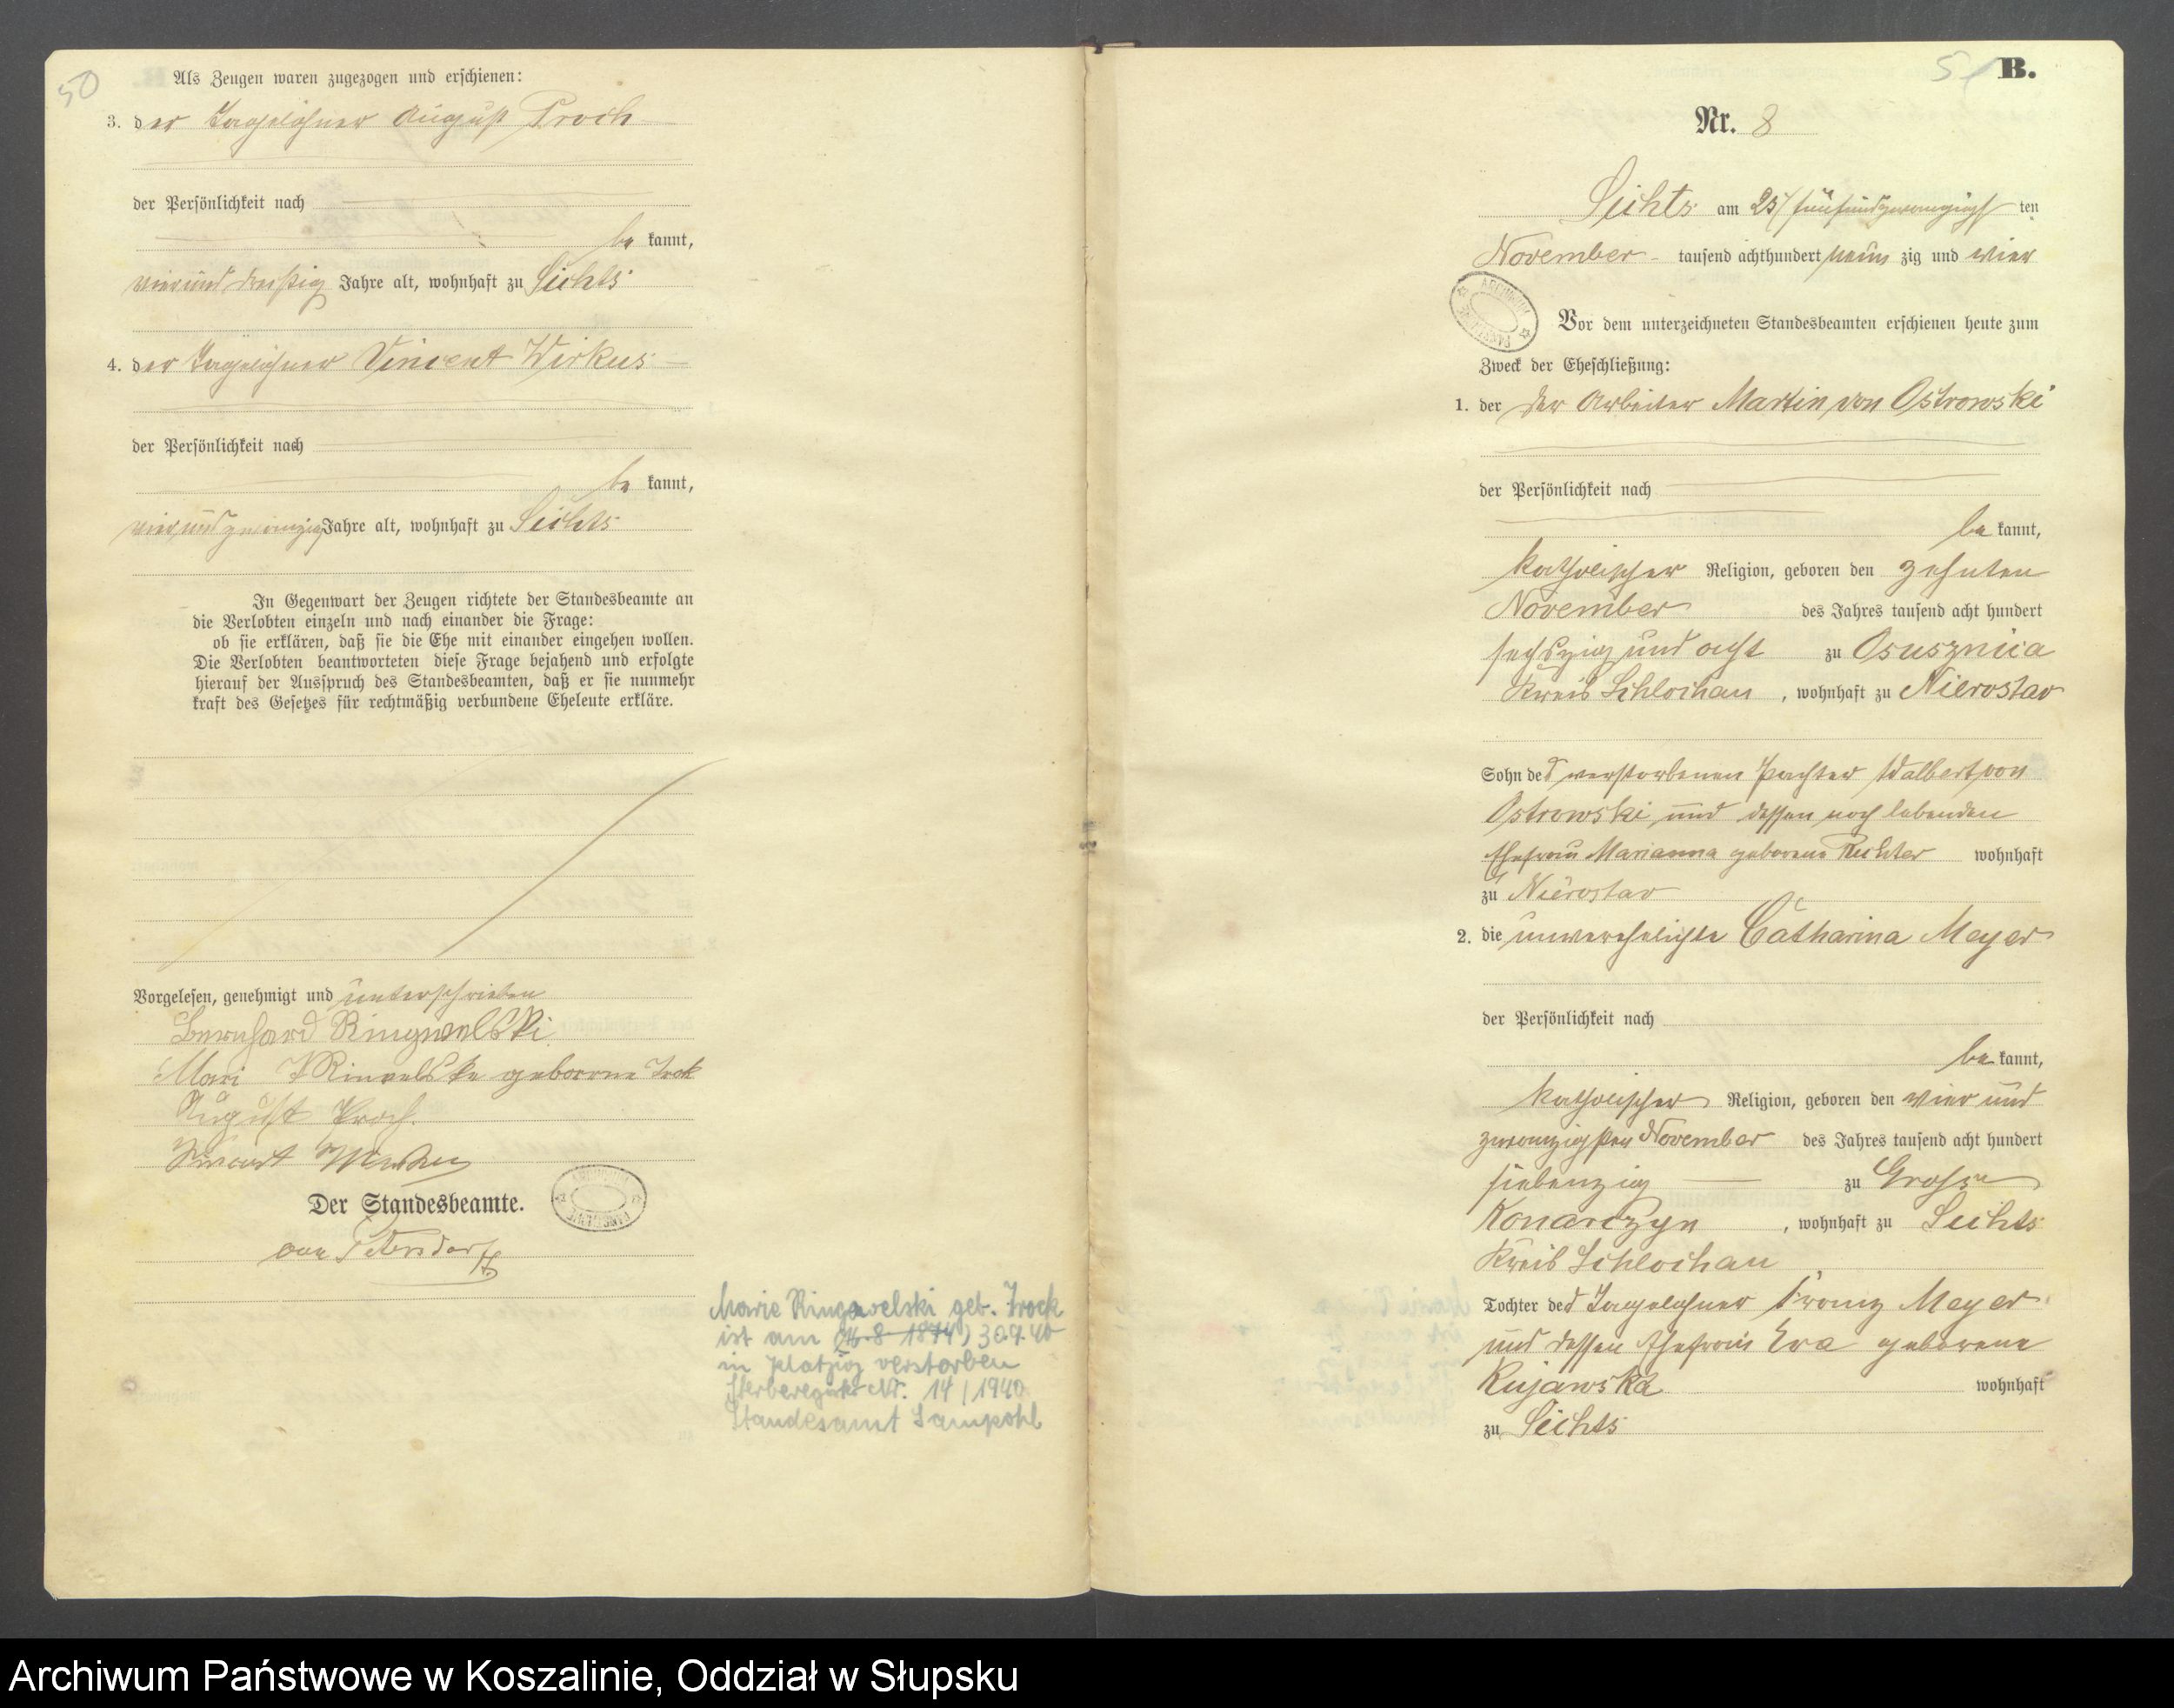 50
Als Zeugen waren zugezogen und erschienen:
3. der Tagelöhner August Proch
der Persönlichkeit nach
be kannt,
vierunddreißig Jahre alt, wohnhaft zu Sichts
4. der Tagelöhner Vincent Wirkus
der Persönlichkeit nach
be kannt,
vierundzwanzig Jahre alt, wohnhaft zu Sichts
In Gegenwart der Zeugen richtete der Standesbeamte an
die Verlobten einzeln und nach einander die Frage:
ob sie erklären, daß sie die Ehe mit einander eingehen wollen.
Die Verlobten beantworteten diese Frage bejahend und erfolgte
hierauf der Ausspruch des Standesbeamten, daß er sie nunmehr
kraft des Gesetzes für rechtmäßig verbundene Eheleute erkläre.
Vorgelesen, genehmigt und unterschrieben
Bernhard Ringwelski
Mari Ringwelski geborene
August Proch.
Vincent Wirkus
Der Standesbeamte.
von Petersdorff
ARCHIWUM PAŃSTWOWE
Marie Ringwelski geb. Trock
ist am (14.8 1874) 30.9.40
in Platzig verstorben
Sterberegister Nr. 14/1940
Standesamt Sampohl
51 B.
Nr. 8
Sichts am 25/fünfundzwanzigs ten
November tausend achthundert neun zig und vier
ARCHIWUM PAŃSTWOWE
Vor dem unterzeichneten Standesbeamten erschienen heute zum
Zweck der Eheschließung:
1. der der Arbeiter Martin von Ostrowski
der Persönlichkeit nach
be kannt,
katholischer Religion, geboren den zehnten
November des Jahres tausend acht hundert
sechszig und acht zu Osusznica
Kreis Schlochau, wohnhaft zu Nierostaw
Sohn des verstorbenen Pächter Walbert von
Ostrowski und dessen noch lebenden
Ehefrau Marianna geborene Richter wohnhaft
zu Nierostaw
2. die unverehelichte Catharina Meyer
der Persönlichkeit nach
be kannt,
katholischer Religion, geboren den vier und
zwanzigsten November des Jahres tausend acht hundert
siebenzig zu Gross
Konarczyn, wohnhaft zu Sichts
Kreis Schlochau
Tochter des Tagelöhner Franz Meyer
und dessen Ehefrau Eva geborene
Kujawska wohnhaft
zu Sichts
Archiwum Państwowe w Koszalinie, Oddział w Słupsku